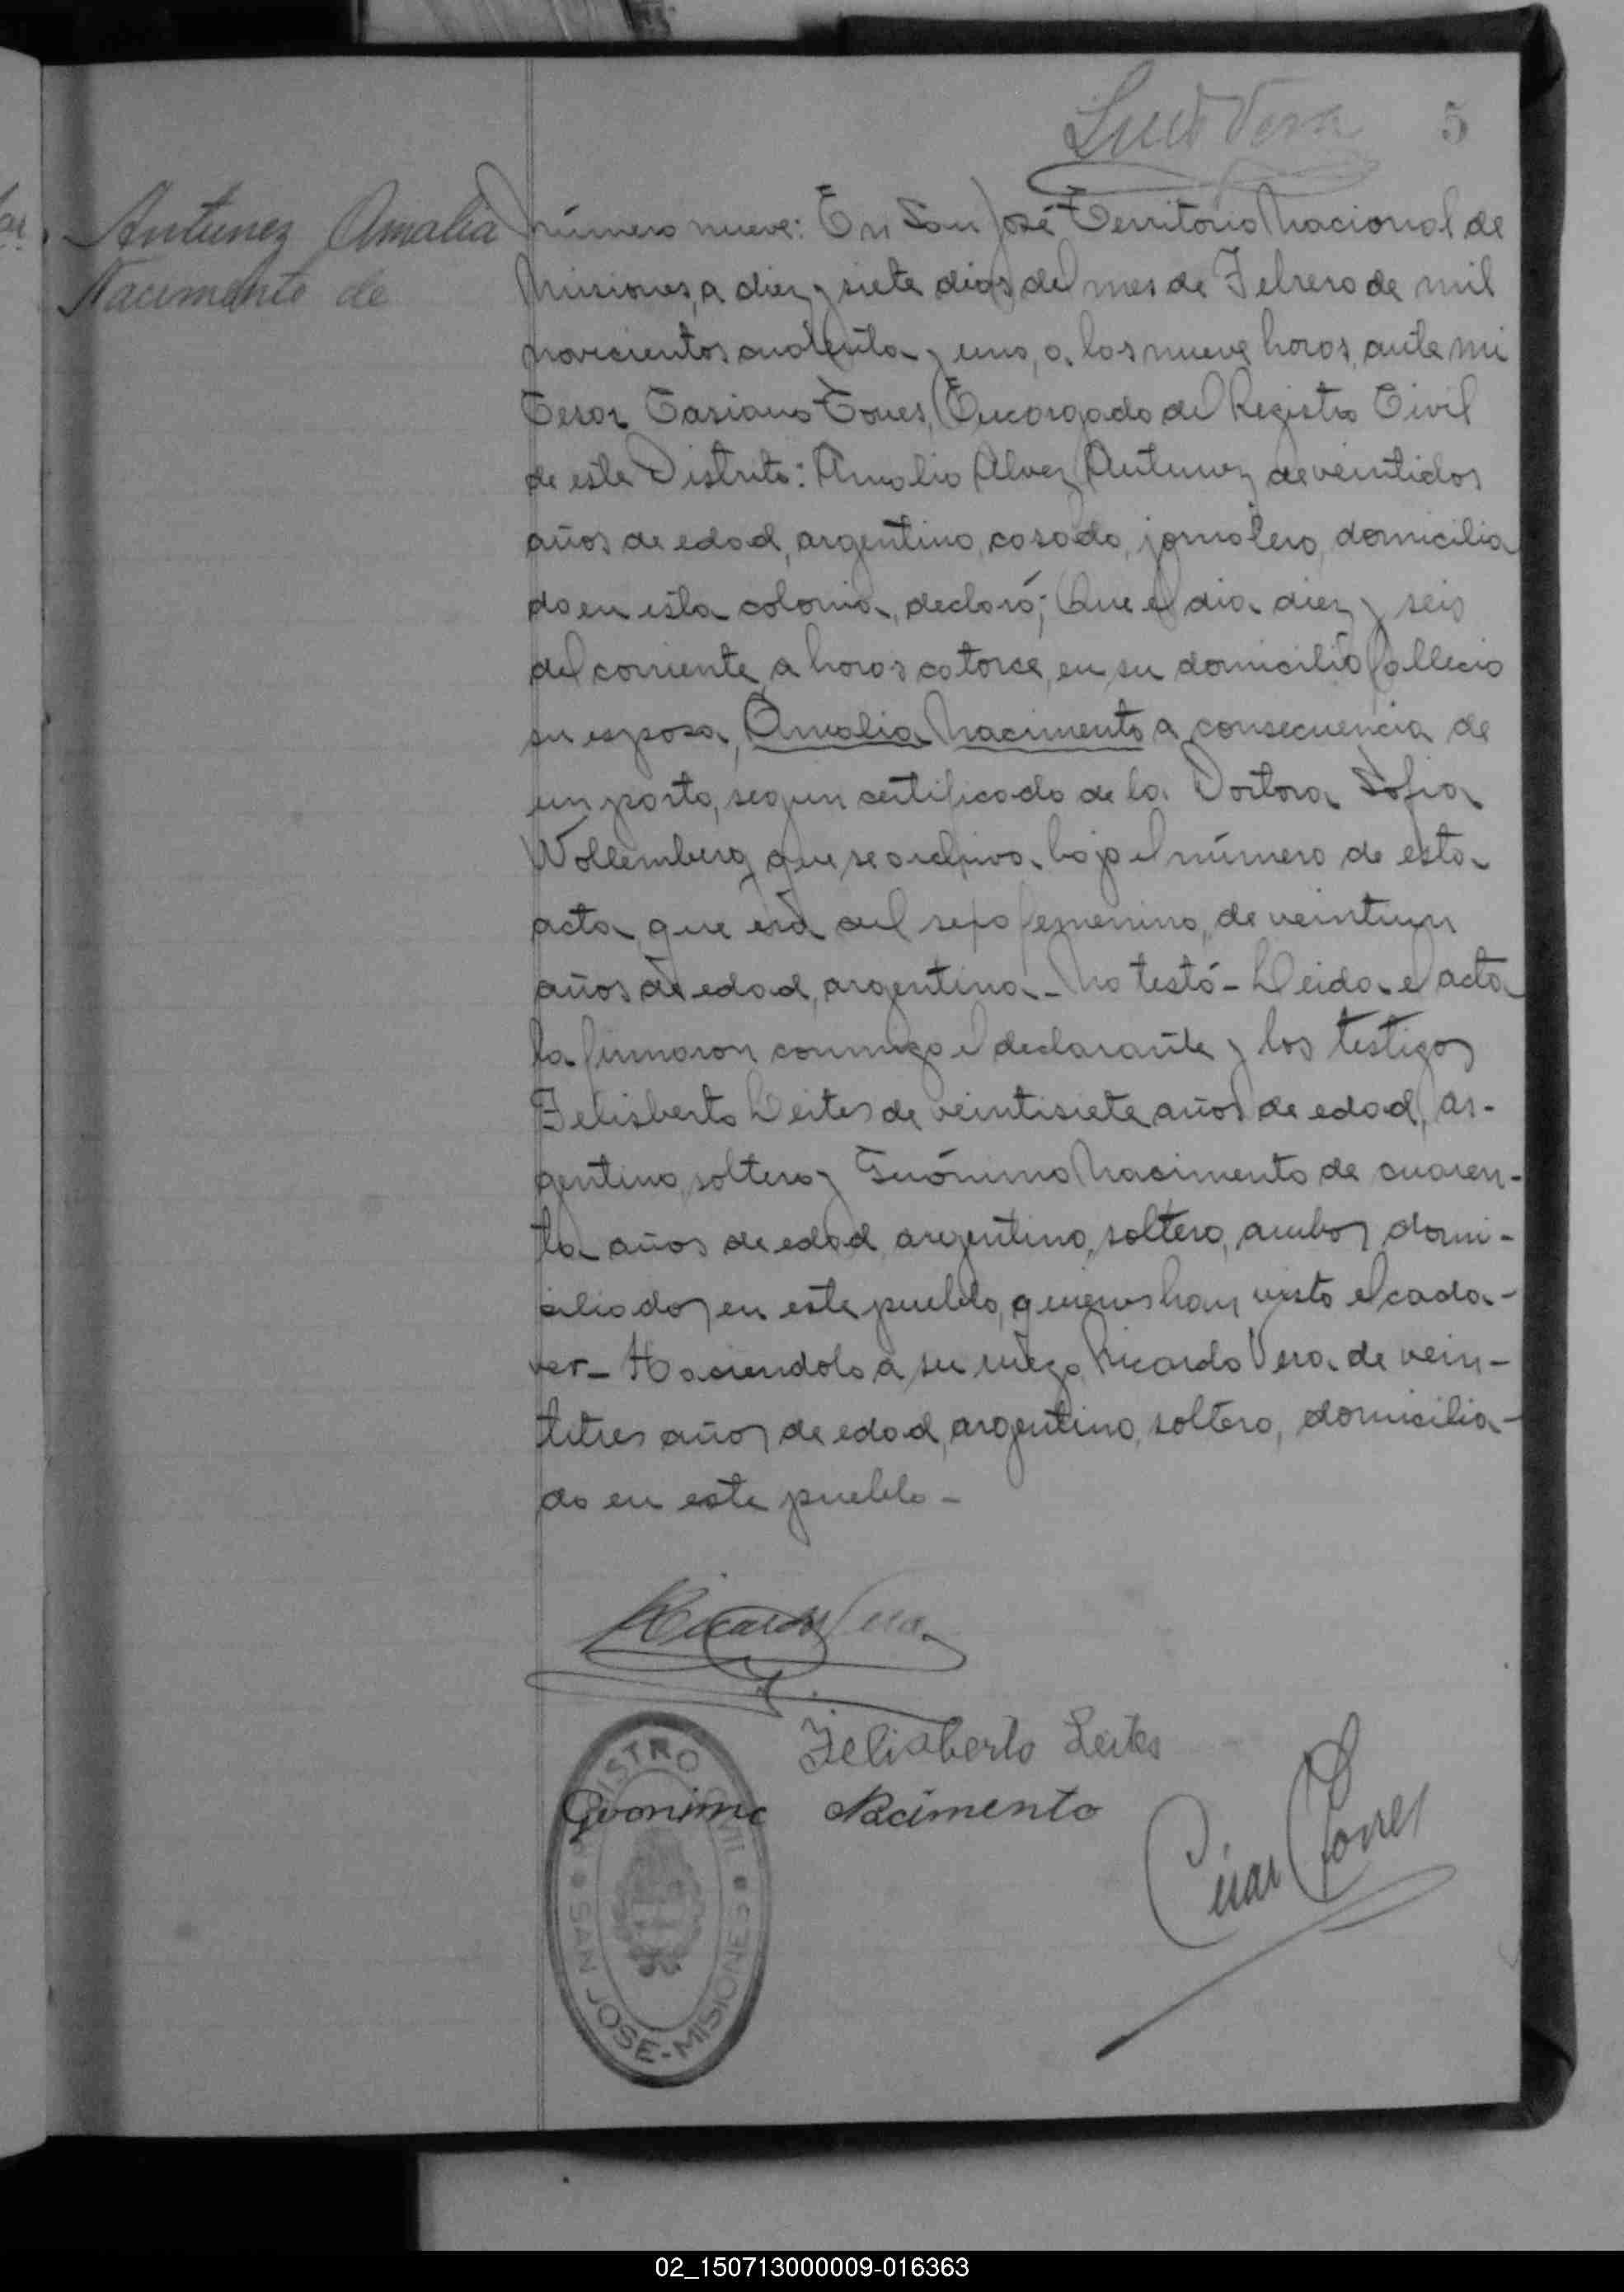 Luis Vera
5
Antunez Amalia
Nacimento de
Número nueve: En San José Territorio Nacional de
Misiones, a diez y siete dias del mes de Febrero de mil
novecientos cuarenta y uno, a las nueve horas, ante mi
Cesar Casiano Torres, Encargado del Registro Civil
de este Distrito: Amalio Alvez Antunez de veintidos
años de edad, argentino, casado, jornalero, domicilia
do en esta colonia, declaró; Que el dia diez y seis
del corriente, a horas catorse, en su domicilio fallecio
su esposa, Amalia Nacimento a consecuencia de
un parto, segun certificado de la Doctora Sofia
Wollemberg que se archiva bajo el número de esta
acta, que era del sexo femenino, de veintiun
años de edad, argentina - No testó - Leida el acta
la firmaron conmigo el declarante y los testigos
Felisberto Leites de veintisiete años de edad, ar-
gentino, soltero y Gerónimo Nacimento de cuaren-
ta años de edad, argentino, soltero, ambos domi-
ciliados en este pueblo, quienes han visto el cada-
ver - Haciendolo a su ruego Ricardo Vera de vein-
titres años de edad, argentino, soltero, domicilia-
do en este pueblo -
Ricardo Vera
Felisberto Leites
Geronimo Nacimento
Cesar Torres
REGISTRO CIVIL
SAN JOSE - MISIONES
02_150713000009-016363